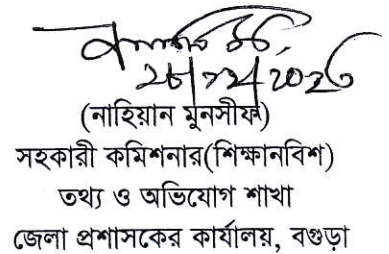 (নাহিয়ান মুনসীফ)
সহকারী কমিশনার(শিক্ষানবিশ)
তথ্য ও অভিযোগ শাখা
জেলা প্রশাসকের কার্যালয়, বগুড়া